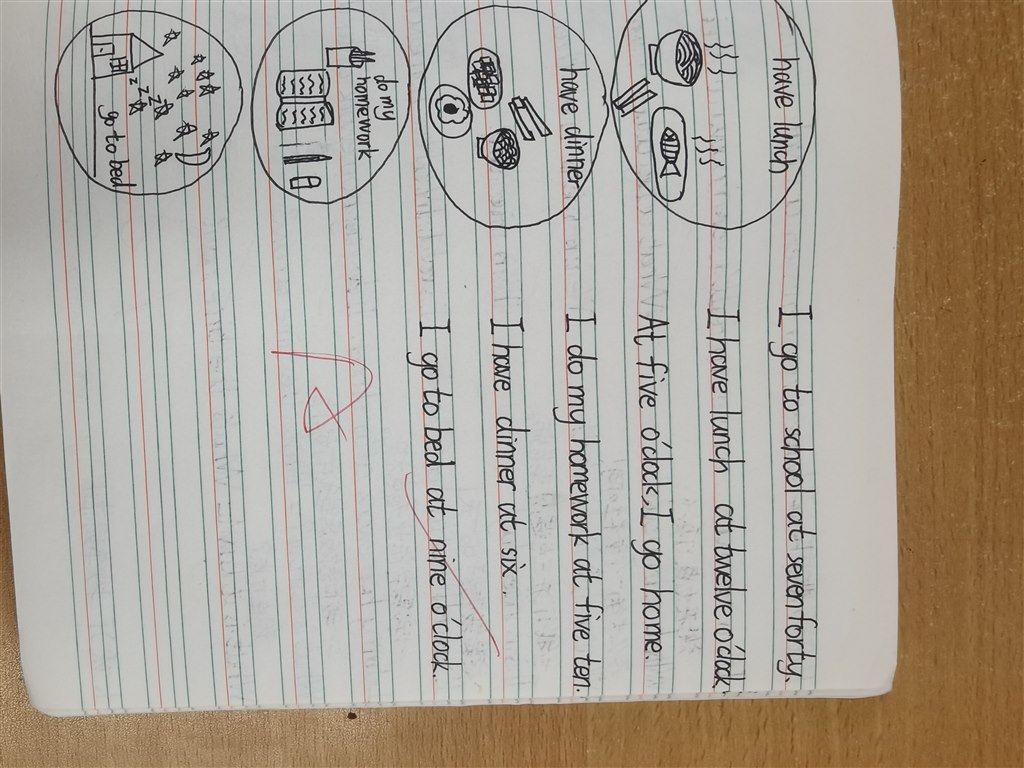 have lunch
have dinner
do my
homework
z z z
go to bed
I go to school at seven forty.
I have lunch at twelve o'clock
At five o'clock, I go home.
I do my homework at five ten.
I have dinner at six.
I go to bed at nine o'clock.